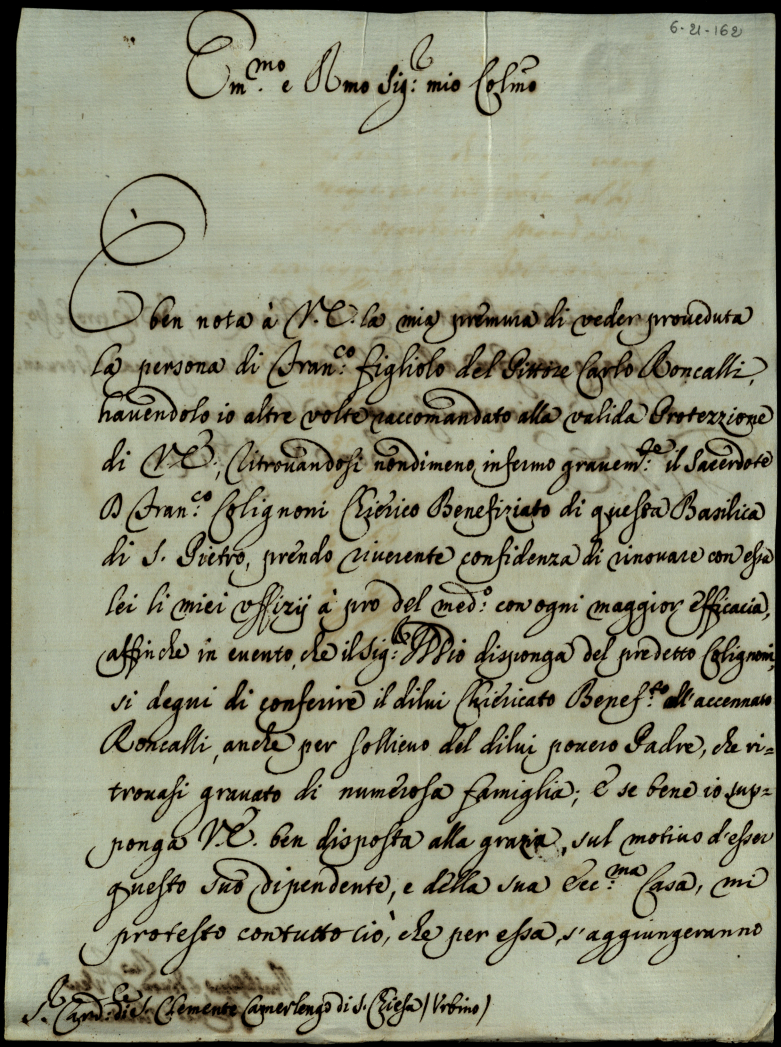 6-21-162
Em.mo e Rmo Sig.r mio Colmo
È ben nota à V.E. la mia premura di veder proueduta
la persona di Fran.co figliolo del Pittore Carlo Roncalli,
hauendolo io altre volte raccomandato alla valida Protezzione
di V.E.; Ritrouandosi nondimeno infermo grauem.te il Sacerdote
D Fran.co Colignoni Chierico Benefiziato di questa Basilica
di S. Pietro, prendo riuerente confidenza di rinouare con essa
lei li miei uffizij à pro del med.o con ogni maggior efficacia,
affinche in euento, che il Sig.re Iddio disponga del predetto Colignoni,
si degni di conferire il dilui Chiericato Benef.to all'accennato
Roncalli, anche per sollieuo del dilui pouero Padre, che ri=
trouasi grauato di numerosa famiglia; E se bene io sup=
ponga V.E. ben disposta alla grazia, sul motiuo d'esser
questo suo dipendente, e della sua Ecc.ma Casa, mi
protesto contutto ciò, che per essa, s'aggiungeranno
S.r Card.le di S. Clemente Camerlengo di S. Chiesa (Urbino)